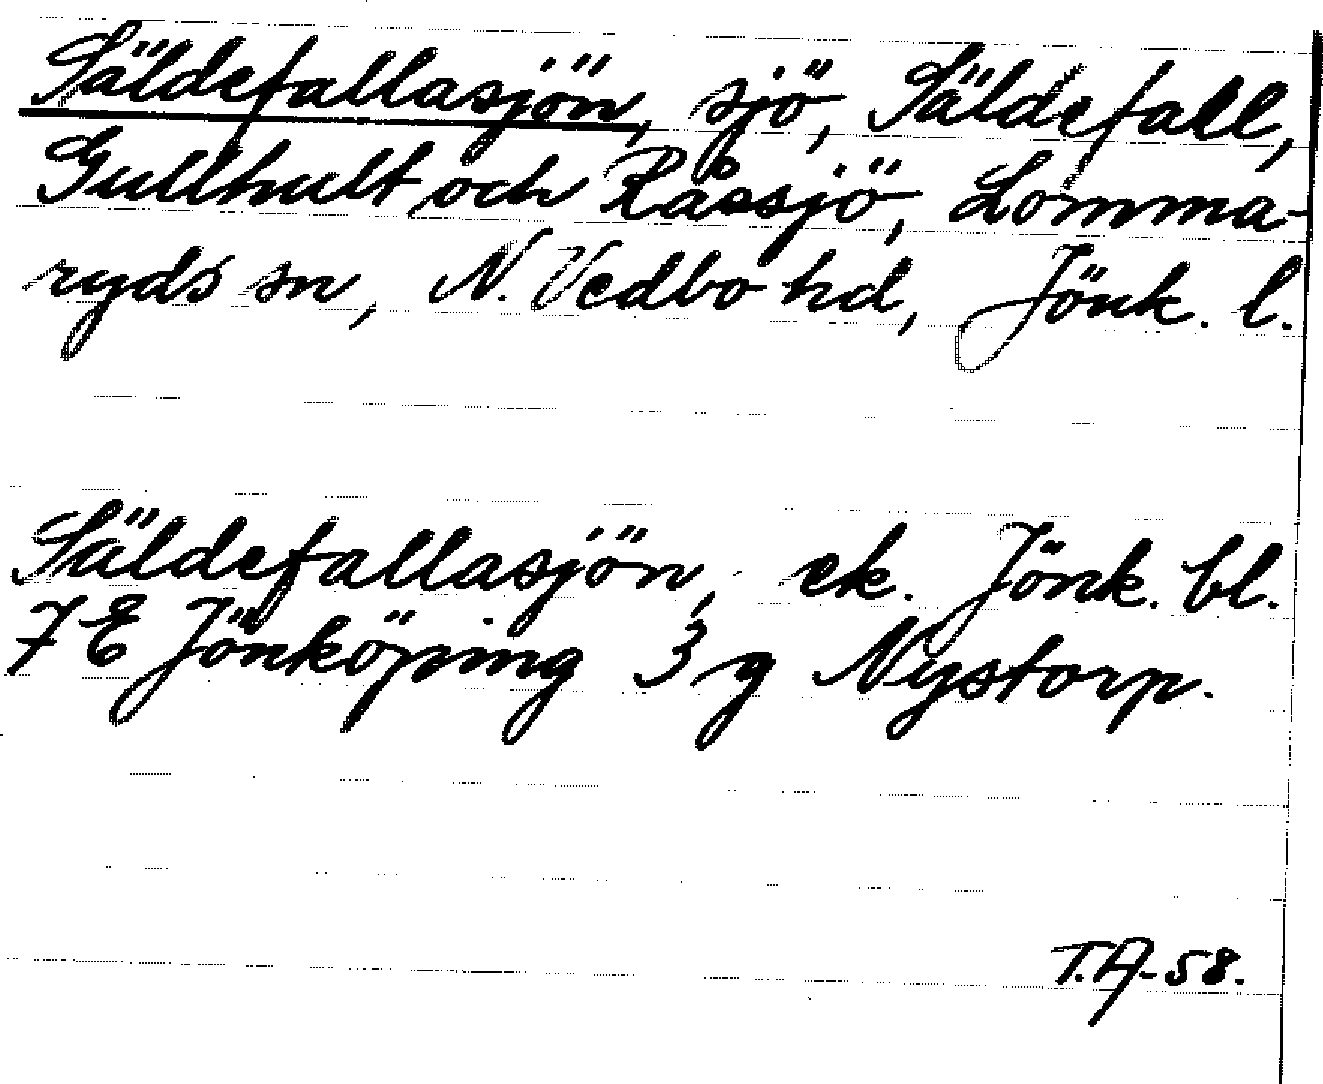 Säldefallasjön, sjö, Säldefall,
Gullhult och Råssjö, Lomma-
ryds sn, N. Vedbo hd, Jönk. l.
Säldefallasjön, ek. Jönk. bl.
7E Jönköping 3 g Nystorp.
T.A-58.